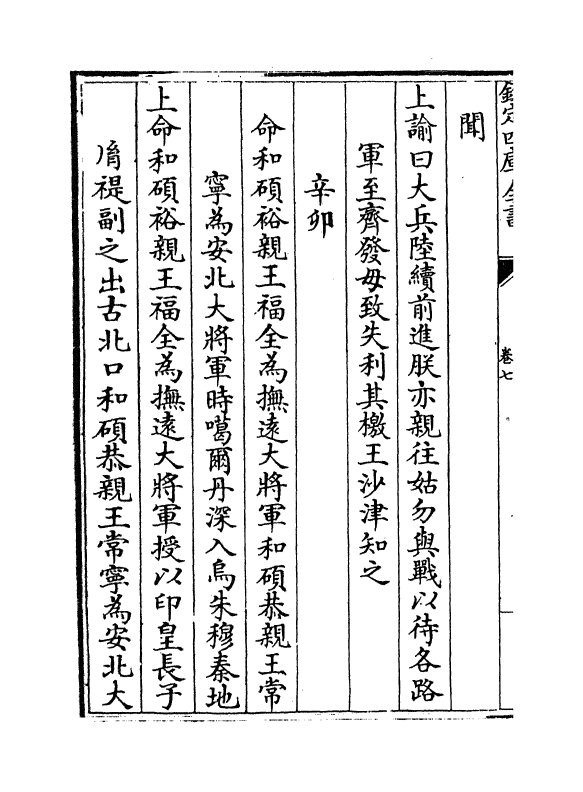 欽定四庫全書
卷七
聞
上諭曰大兵陸續前進朕亦親往姑勿與戰以待各路
軍至齊發毋致失利其檄王沙津知之
辛卯
命和碩裕親王福全為撫遠大將軍和碩恭親王常
寧為安北大將軍時噶爾丹深入烏朱穆秦地
上命和碩裕親王福全為撫遠大將軍授以印皇長子
胤禔副之出古北口和碩恭親王常寧為安北大